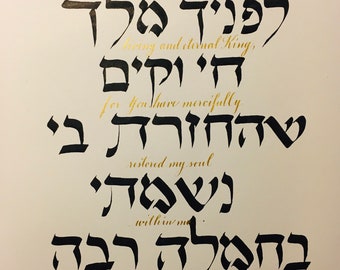 לפניך מלך
living and eternal King,
חי וקים
for You have mercifully
שהחזרת בי
restored my soul
נשמתי
within me.
בחמלה רבה